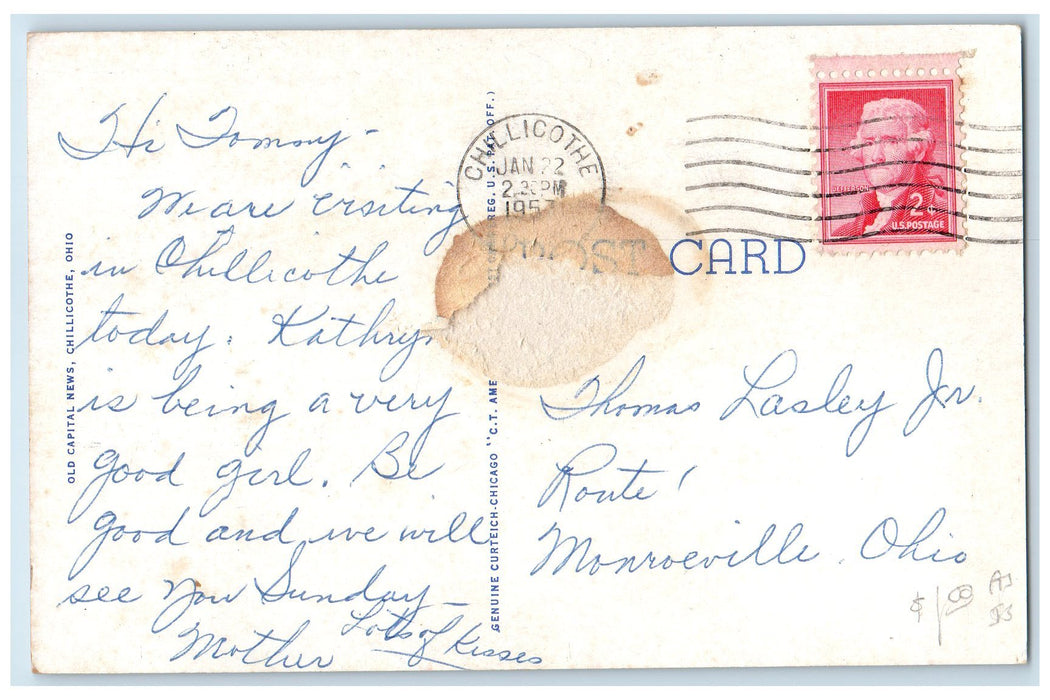 Hi Tommy -
We are visiting
in Chillicothe
today. Kathryn
is being a very
good girl. Be
good and we will
see you Sunday -
Lots of Kisses
Mother
OLD CAPITAL NEWS, CHILLICOTHE, OHIO
GENUINE CURTEICH-CHICAGO "C.T. AME
REG. U.S. PAT. OFF.)
CHILLICOTHE
JAN 22
PM
195
POST CARD
JEFFERSON
2¢
U.S. POSTAGE
Thomas Lasley Jr.
Route 1
Monroeville Ohio
$1.00